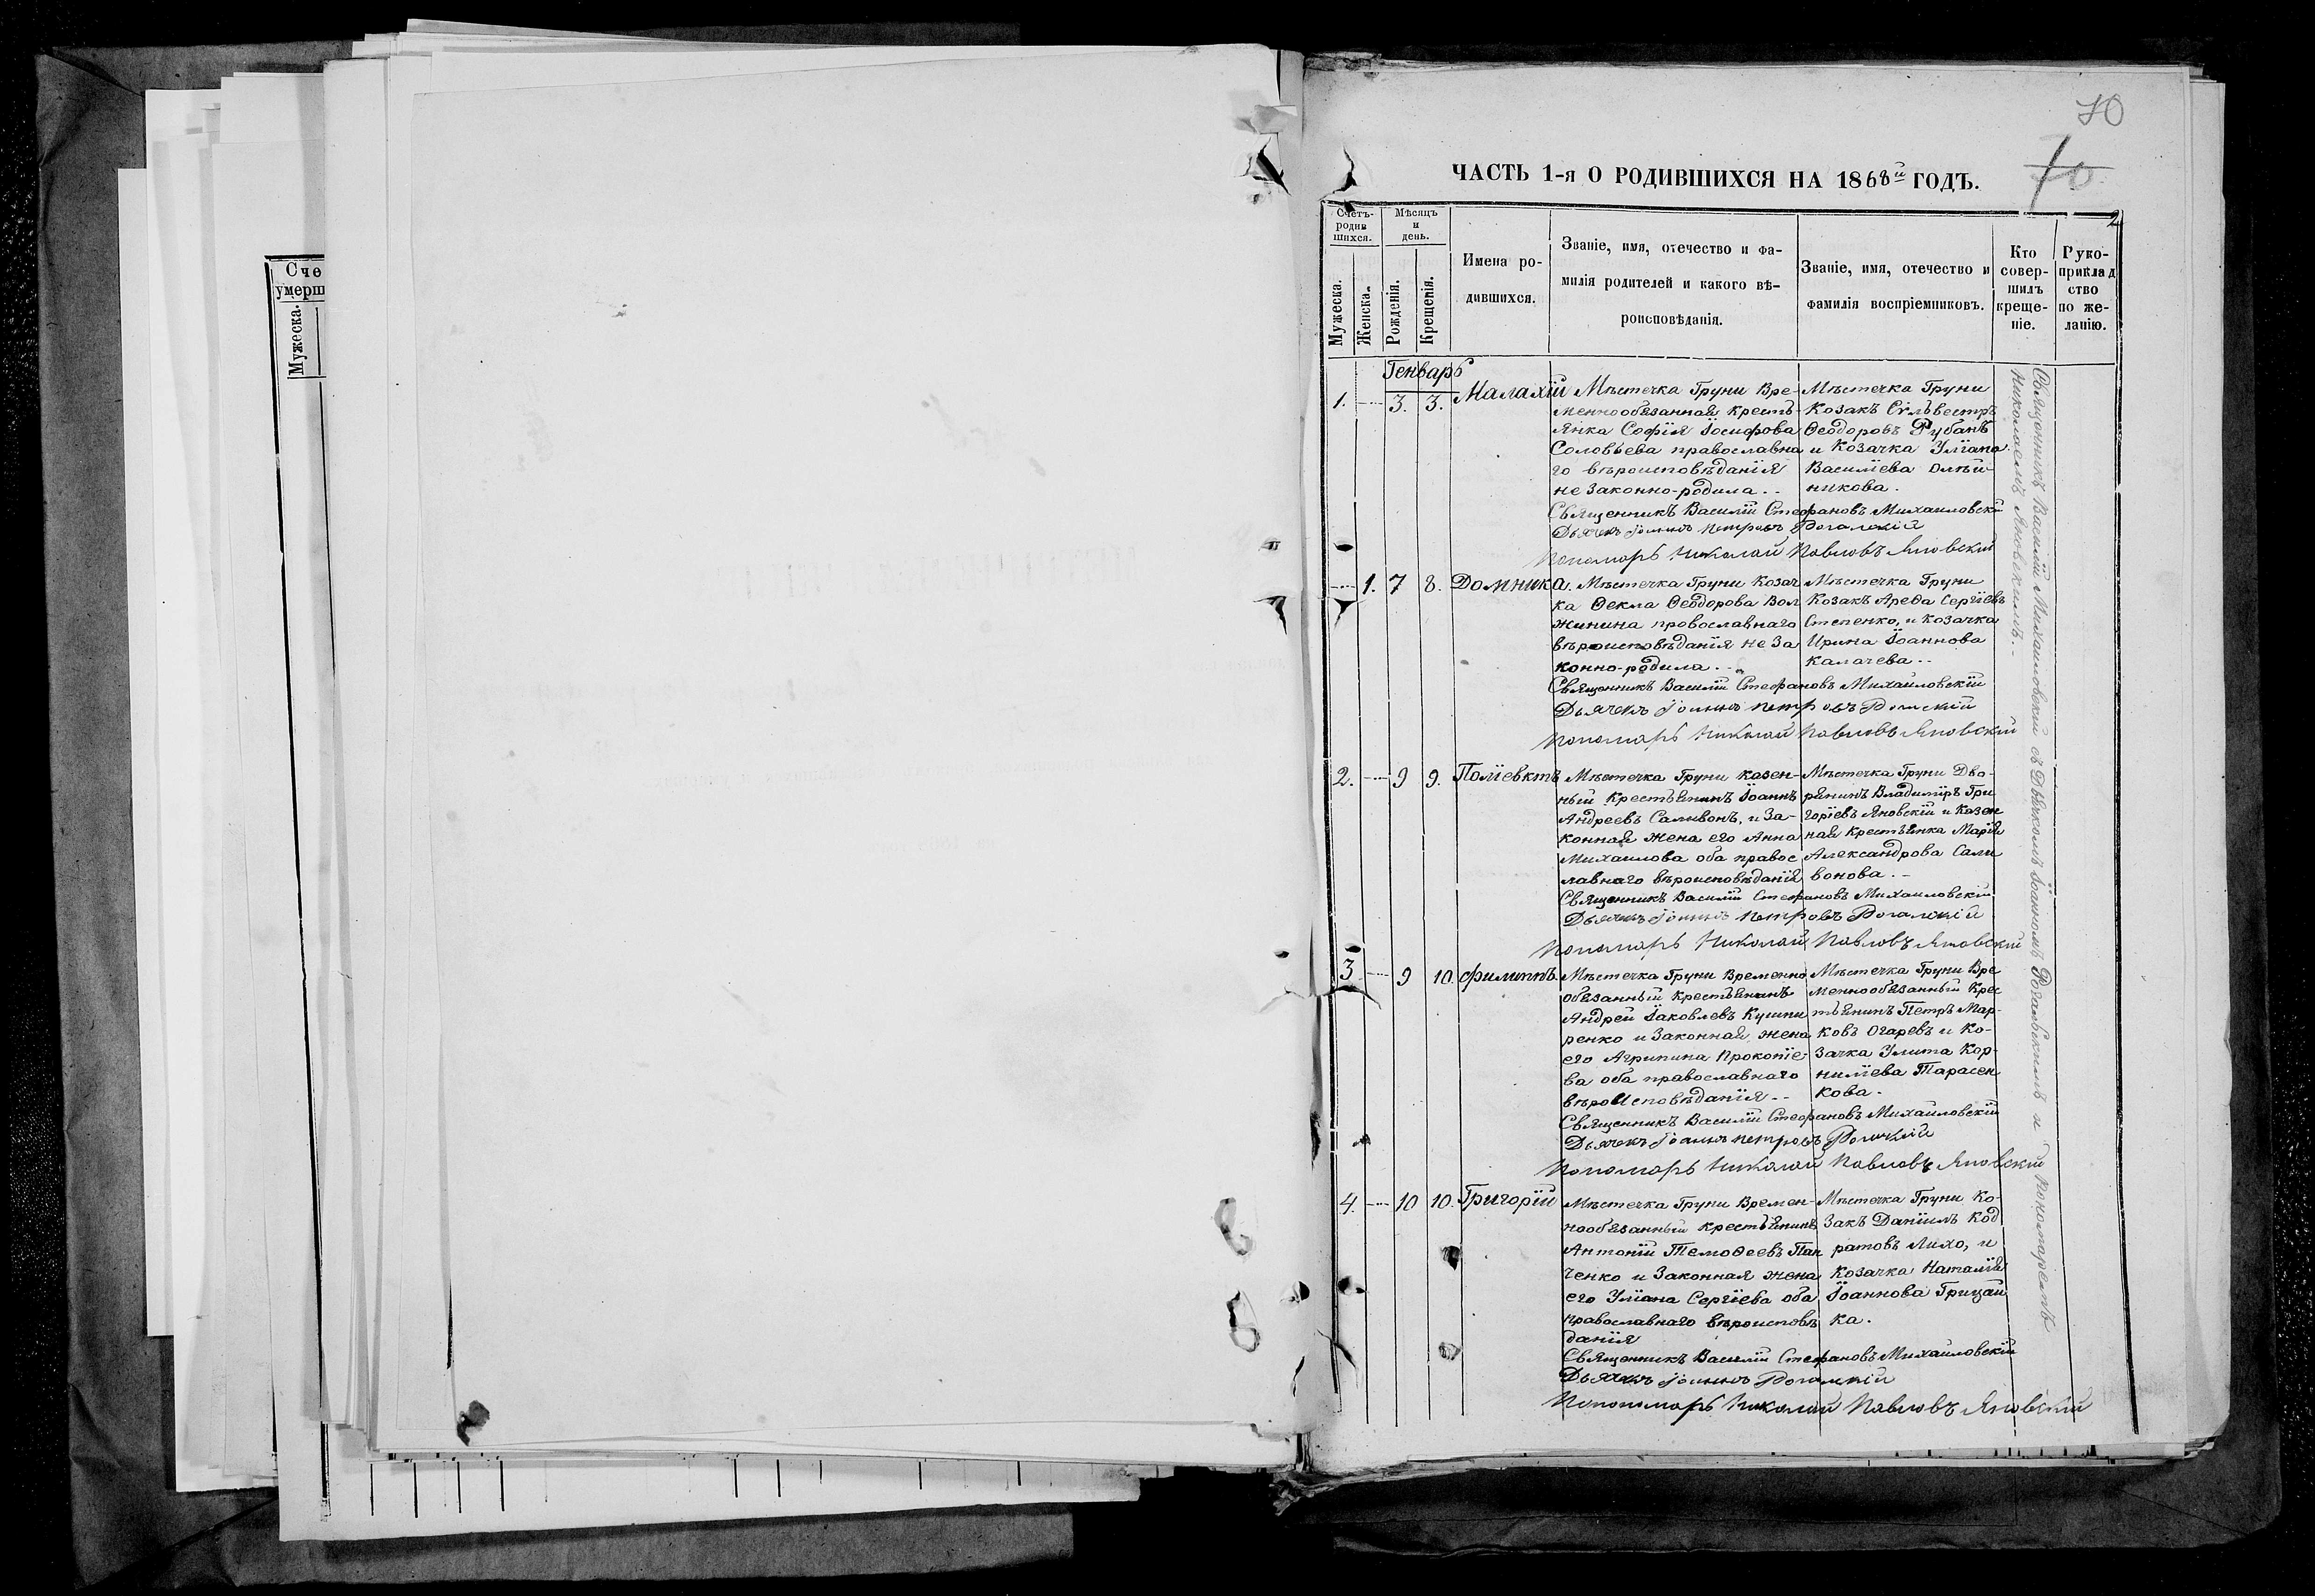 70
70
ЧАСТЬ 1-я О РОДИВШИХСЯ НА 1868й ГОДЪ.
2
Счетъ родившихся.
Мѣсяцъ и день.
Мужеска.
Женска.
Рожденія.
Крещенія.
Имена родившихся.
Званіе, имя, отечество и фа-
милія родителей и какого вѣ-
роисповѣданія.
Званіе, имя, отечество и
фамилія воспріемниковъ.
Кто
совер-
шилъ
креще-
ніе.
Руко-
приклад
ство
по же-
ланію.
Счe
умерш
Мужеска.
Генварь
1. 3. 3. Малахій
Мѣстечка Груни Вре-
меннообязанная кресть-
янка Софія Іосифова
Соловьева православна
го вѣроисповѣданія
не законно-родила..
Мѣстечка Груни
Козакъ Сильвестръ
Ѳеодоровъ Рубанъ
и Козачка Уліана
Василіева Олѣй-
никова.
Священникъ Василій Стефановъ Михайловскій
Дьячекъ Іоаннъ Петровъ Рогальскій
Пономарь Николай Павловъ Яновскій
1. 7 8. Домника.
Мѣстечка Груни Козач
ка Ѳекла Ѳеодорова Вол
жинина провославнаго
вѣроисповѣданія не За
конно-родила..
Мѣстечка Груни
Козакъ Ареѳа Сергіевъ
Степенко, и Козачка
Ирина Іоаннова
Калачева..
Священникъ Василій Стефановъ Михайловскій
Дьячекъ Іоаннъ Петровъ Рогальскій
Пономарь Николай Павловъ Яновскій
2. 9 9. Поліевктъ
Мѣстечка Груни казен-
ный Крестьянинъ Іоаннъ
Андреевъ Саливонъ, и За-
конная жена его Анна
Михаилова оба правос
лавнаго вѣроисповѣданія
Мѣстечка Груни Дво-
рянинъ Владиміръ Гри
горіевъ Яновскій и Казен
ная Крестьянка Марія
Александрова Сали
вонова.
Священникъ Василій Стефановъ Михайловскій
Дьячекъ Іоаннъ Петровъ Рогальскій
Пономарь Николай Павловъ Яновскій
3 9 10. Филиппъ.
Мѣстечка Груни Временно
обязанный крестьянинъ
Андрей Іаковлевъ Кушни
ренко и Законная жена
его Агрипина Прокопіе-
ва оба православнаго
вѣроИсповѣданія..
Мѣстечка Груни Вре
меннообязанный Крес
тьянинъ Петръ Мар-
ковъ Огаревъ и Ко-
зачка Улита Кор-
ниліева Тарасен
кова.
Священникъ Василій Стефановъ Михайловскій
Дьячекъ Іоаннъ Петровъ Рогальскій
Пономарь Николай Павловъ Яновскій
4. 10 10. Григорій
Мѣстечка Груни Времен-
нообязанный крестьянинъ
Антоній Темоѳеевъ Пан
ченко и Законная жена
его Уліана Сергіева оба
православнаго вѣроисповѣ
данія
Мѣстечка Груни Ко-
закъ Даніилъ Код
ратовъ Лихо, и
Козачка Наталія
Іоаннова Грицай
ка.
Священникъ Василій Стефановъ Михайловскій
Дьячекъ Іоаннъ Рогальскій
Пономарь Николай Павловъ Яновскій
Священникъ Василій Михайловскій съ Дьячкомъ Іоанномъ Рогальскимъ и пономаремъ
Николаемъ Яновскимъ.